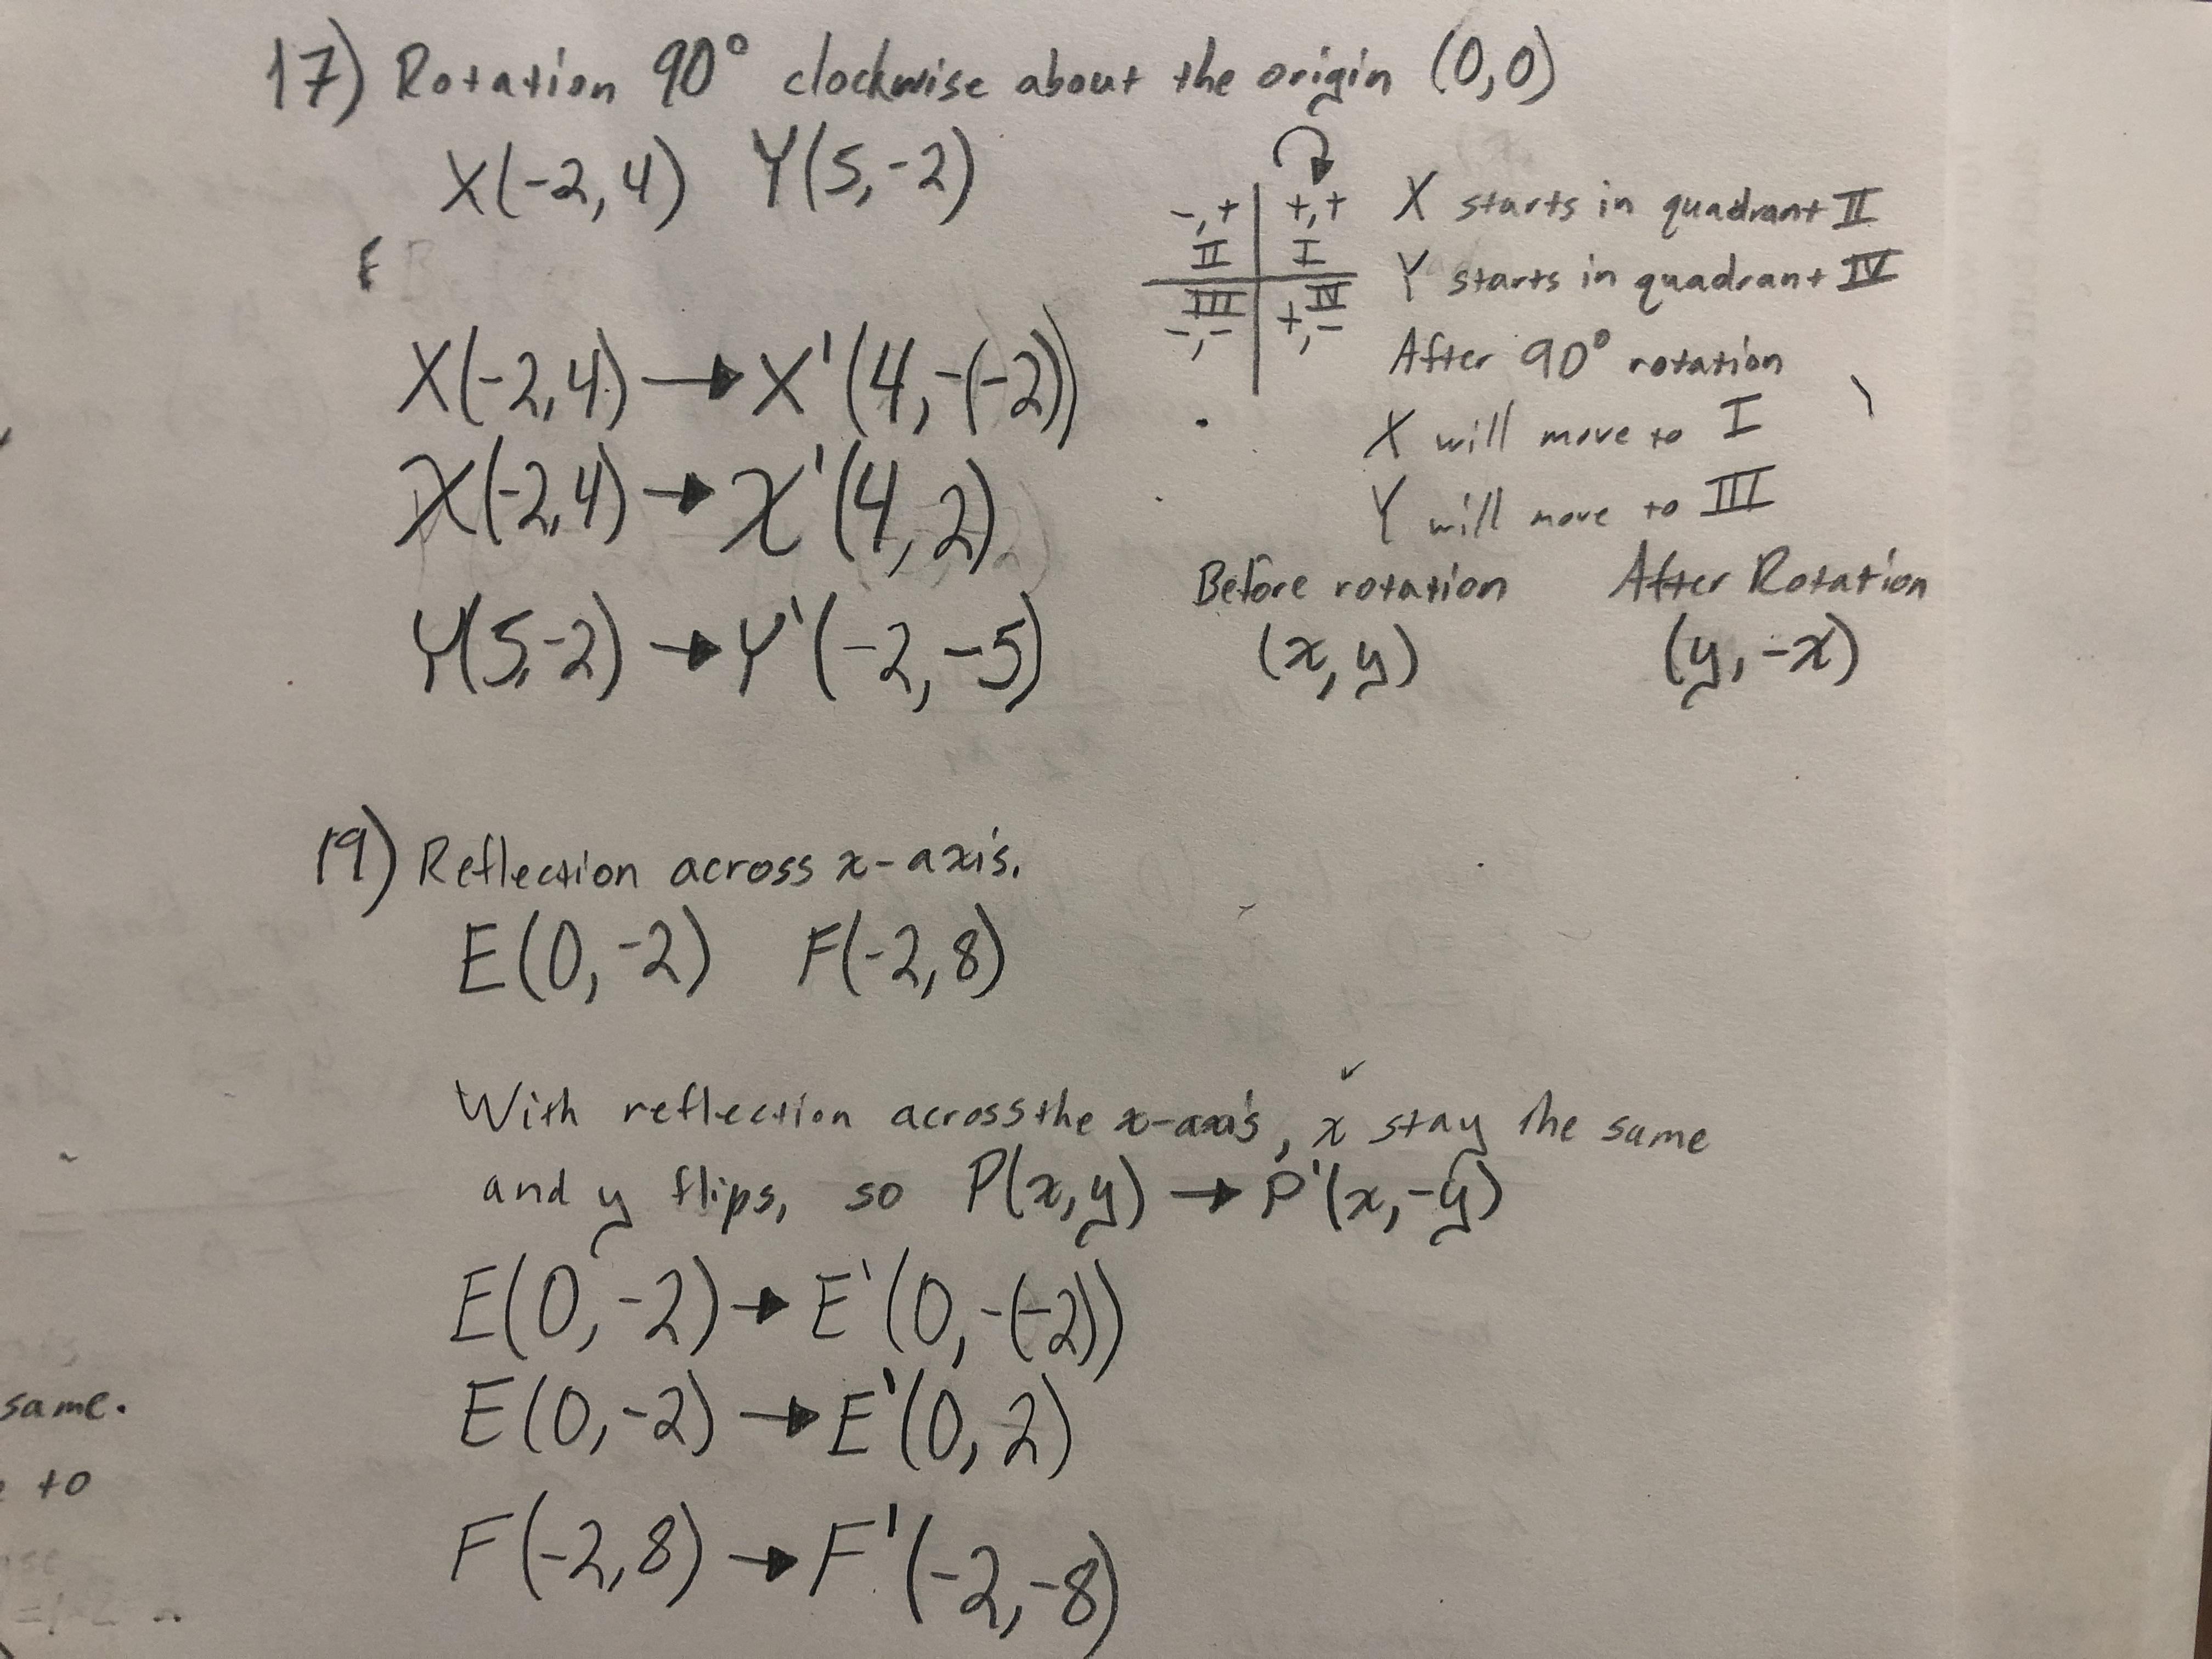 17) Rotation 90° clockwise about the origin (0,0)
X(-2,4) Y(5,-2)
-,+ +,+
II I
III IV
-,- +,-
X starts in quadrant II
Y starts in quadrant IV
After 90° rotation
X will move to I
Y will move to III
X(-2,4) → X'(4,-(-2))
X(-2,4) → X'(4,2)
Y(5,-2) → Y'(-2,-5)
Before rotation After Rotation
(x,y) (y,-x)
19) Reflection across x-axis.
E(0,-2) F(-2,8)
With reflection across the x-axis, x stay the same
and y flips, so P(x,y) → P'(x,-y)
E(0,-2) → E'(0,-(-2))
E(0,-2) → E'(0,2)
F(-2,8) → F'(-2,-8)
same.
to